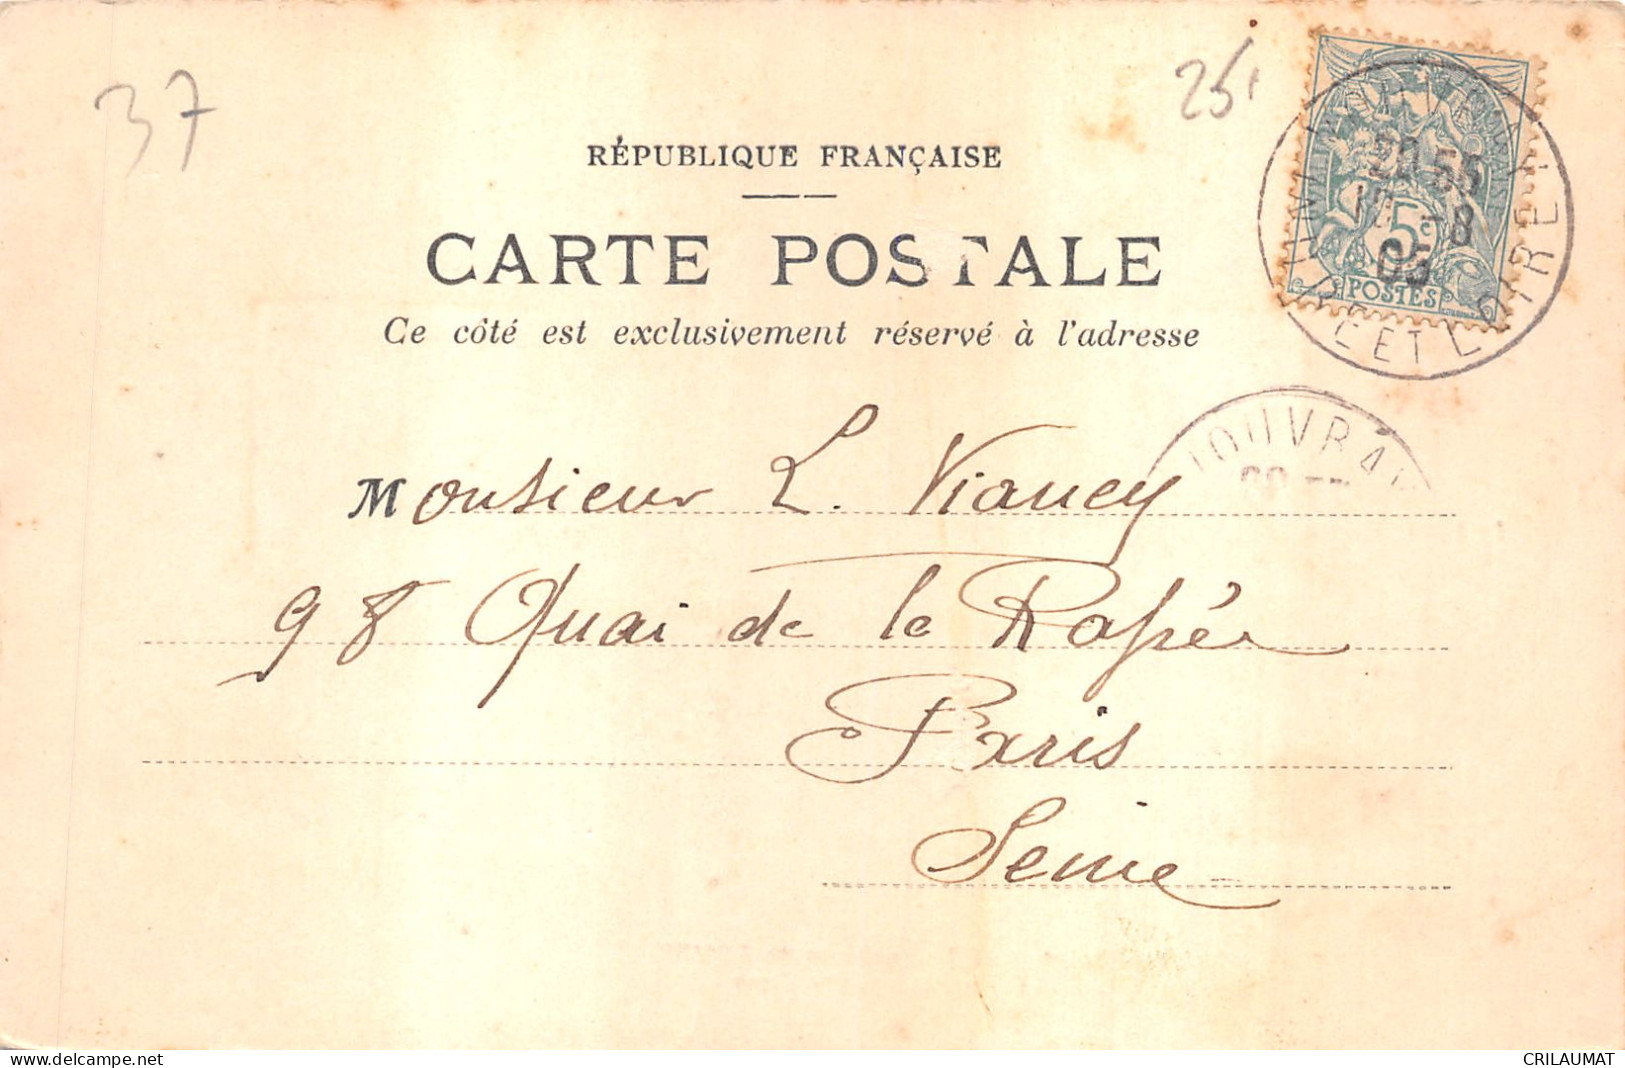 37
25
RÉPUBLIQUE FRANÇAISE
CARTE POSTALE
Ce côté est exclusivement réservé à l'adresse
5c
POSTES
8
05
ET LOIRE
VOUVRAY
Monsieur L. Viancy
98 Quai de la Rapée
Paris
Seine
www.delcampe.net
CRILAUMAT